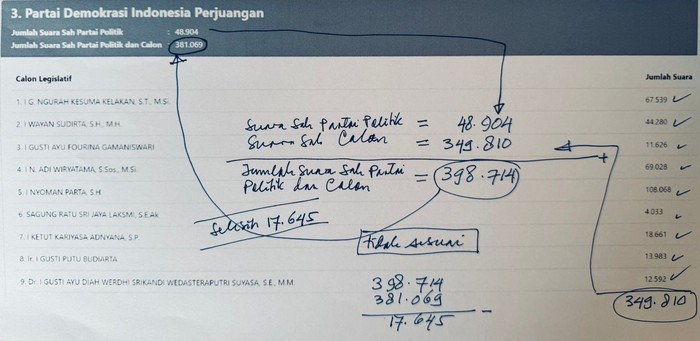 3. Partai Demokrasi Indonesia Perjuangan
Jumlah Suara Sah Partai Politik : 48.904
Jumlah Suara Sah Partai Politik dan Calon 381.069
Calon Legislatif Jumlah Suara
1. I G. NGURAH KESUMA KELAKAN, S.T., M.Si. 67.539
2. I WAYAN SUDIRTA, S.H., M.H. 44.280
3. I GUSTI AYU FOURINA GAMANISWARI 11.626
4. I N. ADI WIRYATAMA, S.Sos., M.Si. 69.028
5. I NYOMAN PARTA, S.H. 108.068
6. SAGUNG RATU SRI JAYA LAKSMI, S.E.Ak 4.033
7. I KETUT KARIYASA ADNYANA, S.P. 18.661
8. Ir. I GUSTI PUTU BUDIARTA 13.983
9. Dr. I GUSTI AYU DIAH WERDHI SRIKANDI WEDASTERAPUTRI SUYASA, S.E., M.M. 12.592
349.810
Suara Sah Partai Politik = 48.904
Suara Sah Calon = 349.810
+
Jumlah Suara Sah Partai
Politik dan Calon = 398.714
Selisih 17.645
Tidak sesuai
398.714
381.069
17.645 -